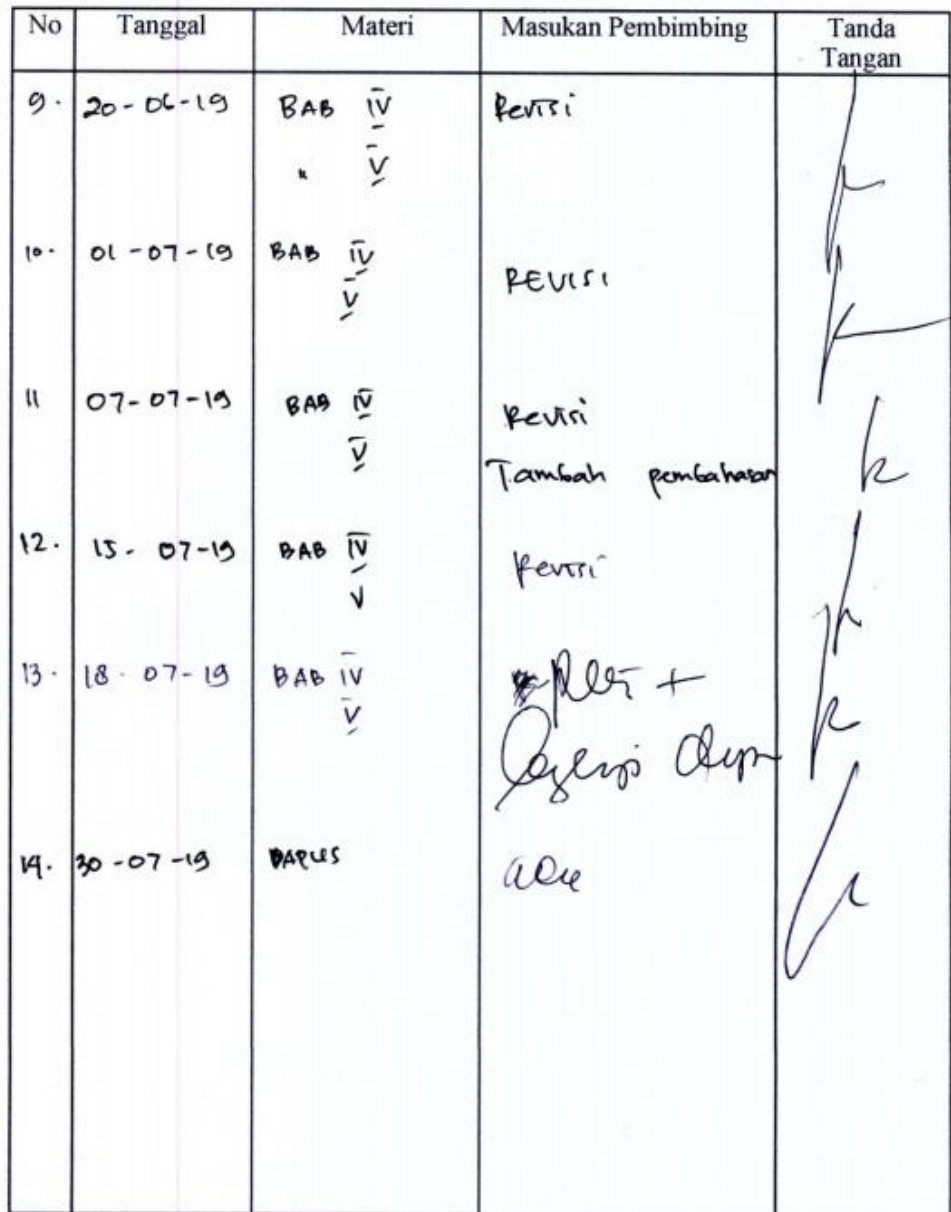 No Tanggal Materi Masukan Pembimbing Tanda
Tangan
9. 20-06-19 BAB IV Revisi
" V
10. 01-07-19 BAB IV
V REVISI
11 07-07-19 BAB IV Revisi
V Tambah pembahasan
12. 15-07-19 BAB IV Revisi
V
13. 18-07-19 BAB IV +
V
14. 30-07-19 DAPUS